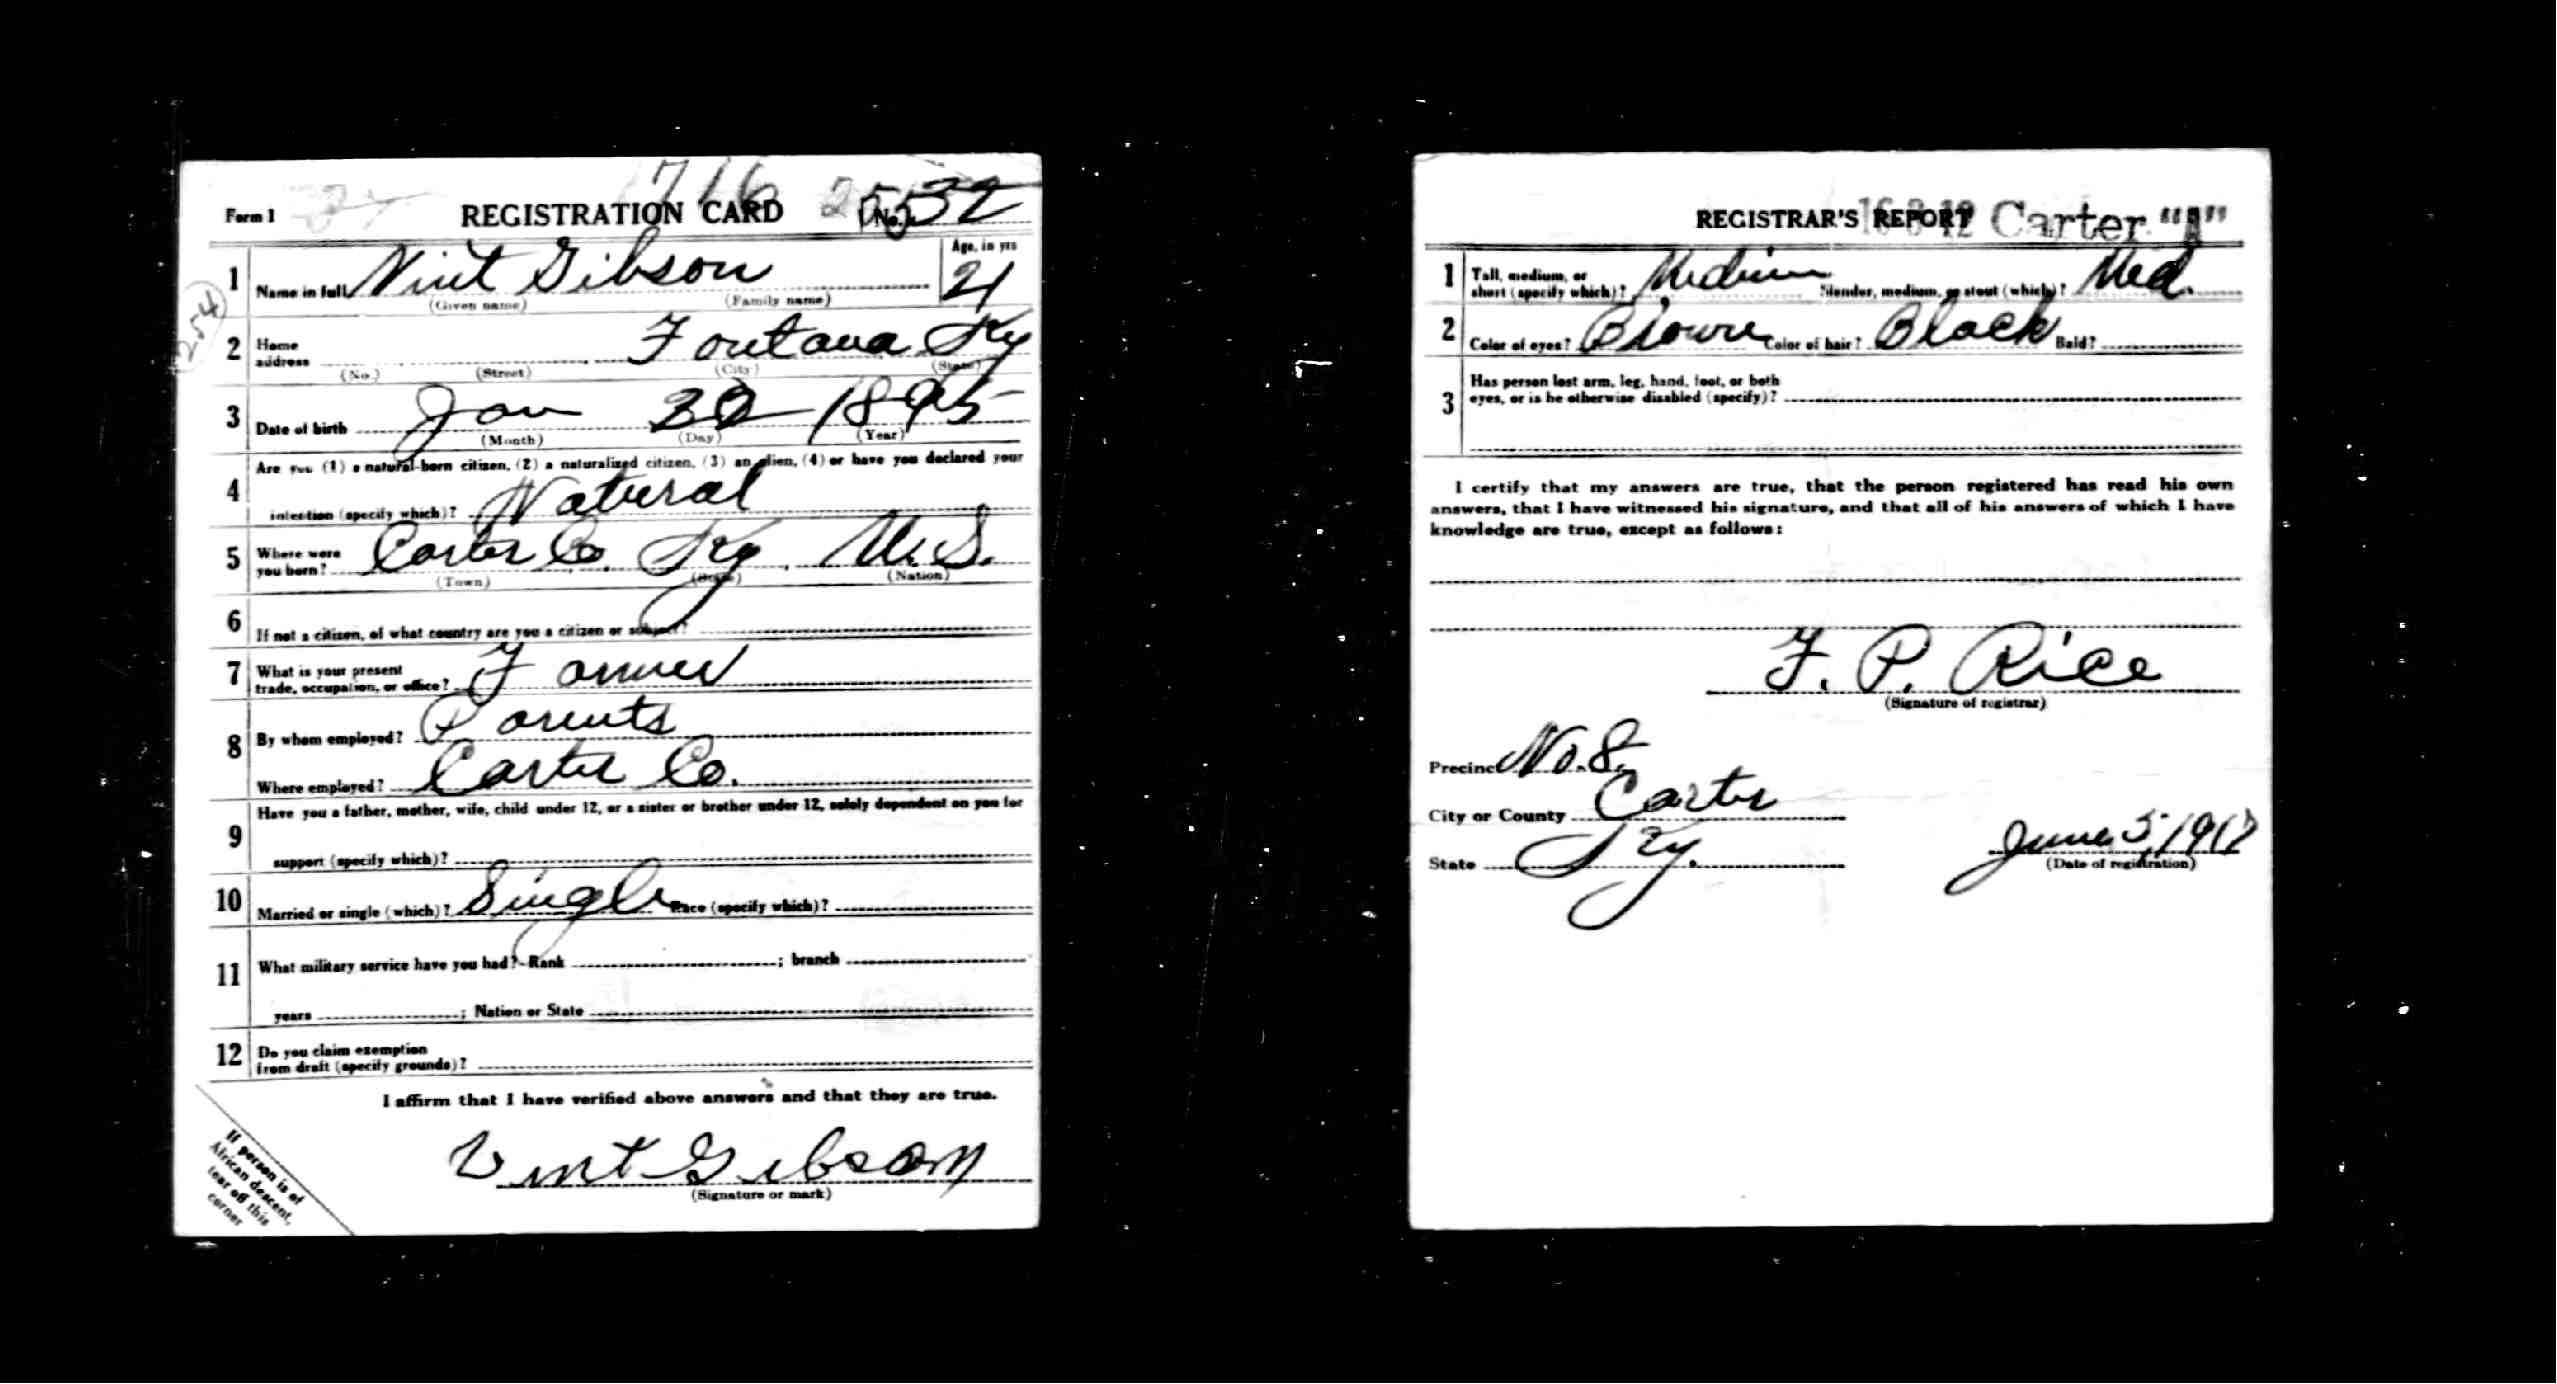 716
Form 1 REGISTRATION CARD No. 532
1 Name in full Vint Gibson Age, in yrs 21
(Given name) (Family name)
254
2 Home address Fontana Ky
(No.) (Street) (City) (State)
3 Date of birth Jan 30 1895
(Month) (Day) (Year)
4 Are you (1) a natural-born citizen, (2) a naturalized citizen, (3) an alien, (4) or have you declared your
intention (specify which)? Natural
5 Where were you born? Carter Co. Ky. U.S.
(Town) (State) (Nation)
6 If not a citizen, of what country are you a citizen or subject?
7 What is your present trade, occupation, or office? Farmer
8 By whom employed? Parents
Where employed? Carter Co.
9 Have you a father, mother, wife, child under 12, or a sister or brother under 12, solely dependent on you for
support (specify which)?
10 Married or single (which)? Single Race (specify which)?
11 What military service have you had? Rank ; branch
years ; Nation or State
12 Do you claim exemption
from draft (specify grounds)?
I affirm that I have verified above answers and that they are true.
Vint Gibson
(Signature or mark)
If person is of
African descent,
tear off this
corner
REGISTRAR'S REPORT Carter "A"
1 Tall, medium, or
short (specify which)? Medium Slender, medium, or stout (which)? Med.
2 Color of eyes? Brown Color of hair? Black Bald?
3 Has person lost arm, leg, hand, foot, or both
eyes, or is he otherwise disabled (specify)?
I certify that my answers are true, that the person registered has read his own
answers, that I have witnessed his signature, and that all of his answers of which I have
knowledge are true, except as follows:
F. P. Rice
(Signature of registrar)
Precinct No. 8.
City or County Carter
State Ky. June 5, 1917
(Date of registration)